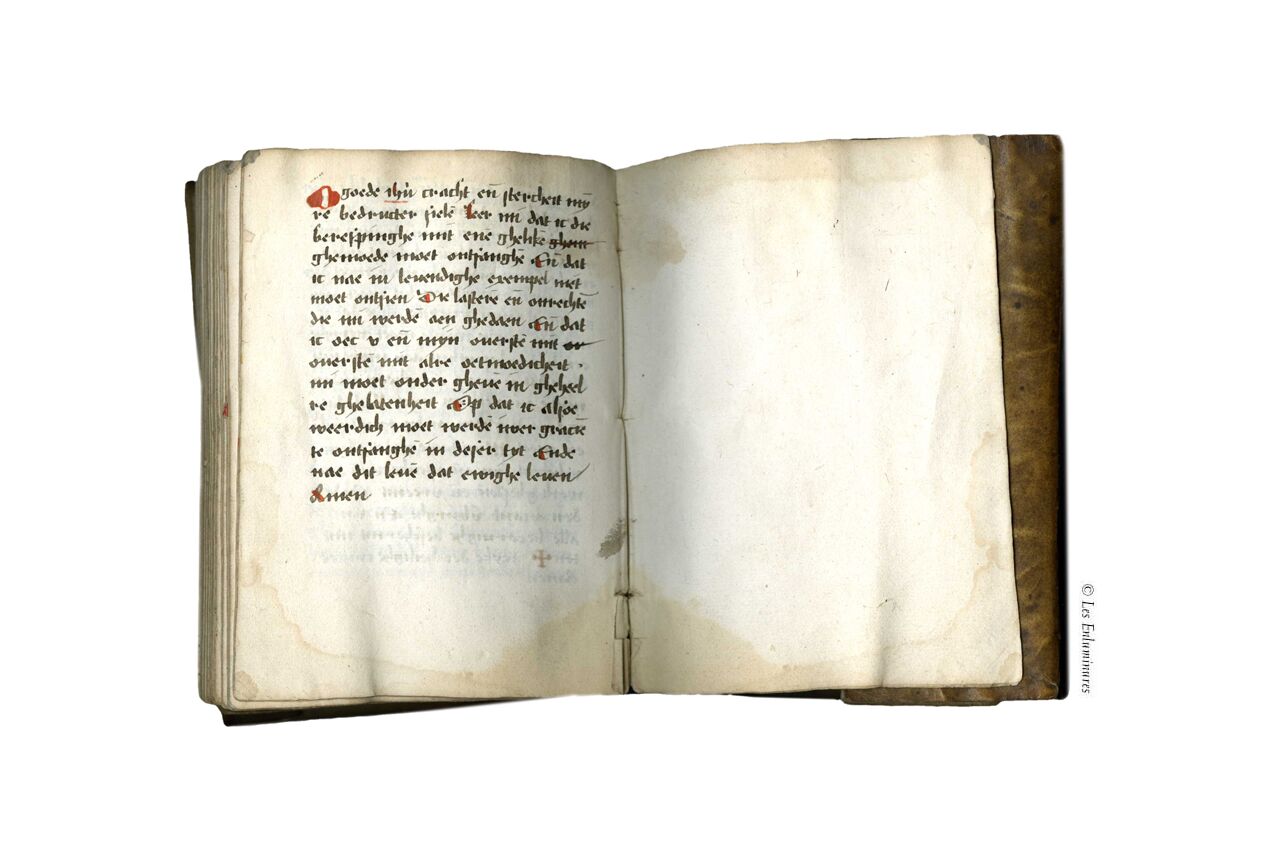 O goede ihū cracht eñ stercheit mÿ
re bedructer sielē Leer mi dat ic die
berespinghe mit enē ghelikē ghem
ghemoede moet ontfanghē Eñ dat
ic nae ui leuendighe exempel niet
moet ontsien Die lasterē eñ onrechtē
die mi werdē aen ghedaen Eñ dat
ic oec v eñ mijn ouerstē mit
ouerstē mit alre oetmoedicheit
mi moet onder gheuē in gheheel
re ghelatenheit Op dat ic alsoe
weerdich moet werdē uwer graciē
te ontfanghē in deser tyt Ende
nae dit leuē dat ewighe leuen
Amen
© Les Enluminures